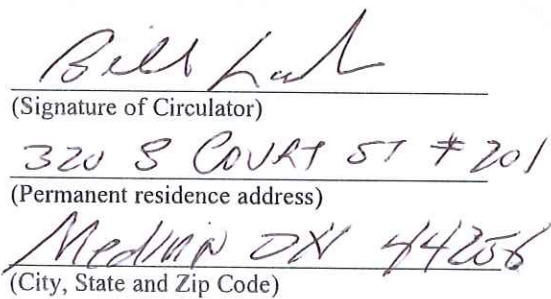 Bill
(Signature of Circulator)
320 S COURT ST # 201
(Permanent residence address)
Medina OH 44256
(City, State and Zip Code)